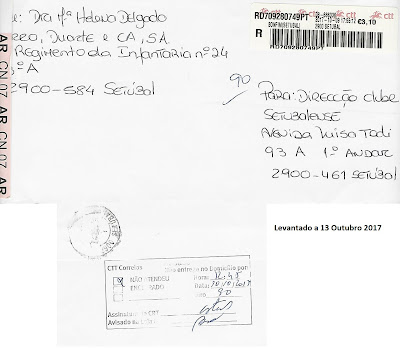 e: Dra Mª Helena Delgado
rezo, Duarte e CA, SA
Regimento da Infantaria nº 24
-ºA
2900-584 Setúbal
AR CN 07 AR CN 07 AR
RD709280749PT
ctt
€3,10
BONFIM(SETUBAL)
2900 SETUBAL
R
RD709280749PT
90
Para: Direcção Clube
Setubalense
Avenida Luisa Todi
93 A 1º Andar
2900-461 Setúbal
Levantado a 13 Outubro 2017
CTT Correios
entrega no Domicílio por:
NÃO ATENDEU
Hora: 12:45
Data: 10/10/2017
90
Assinatura CTT
Avisado